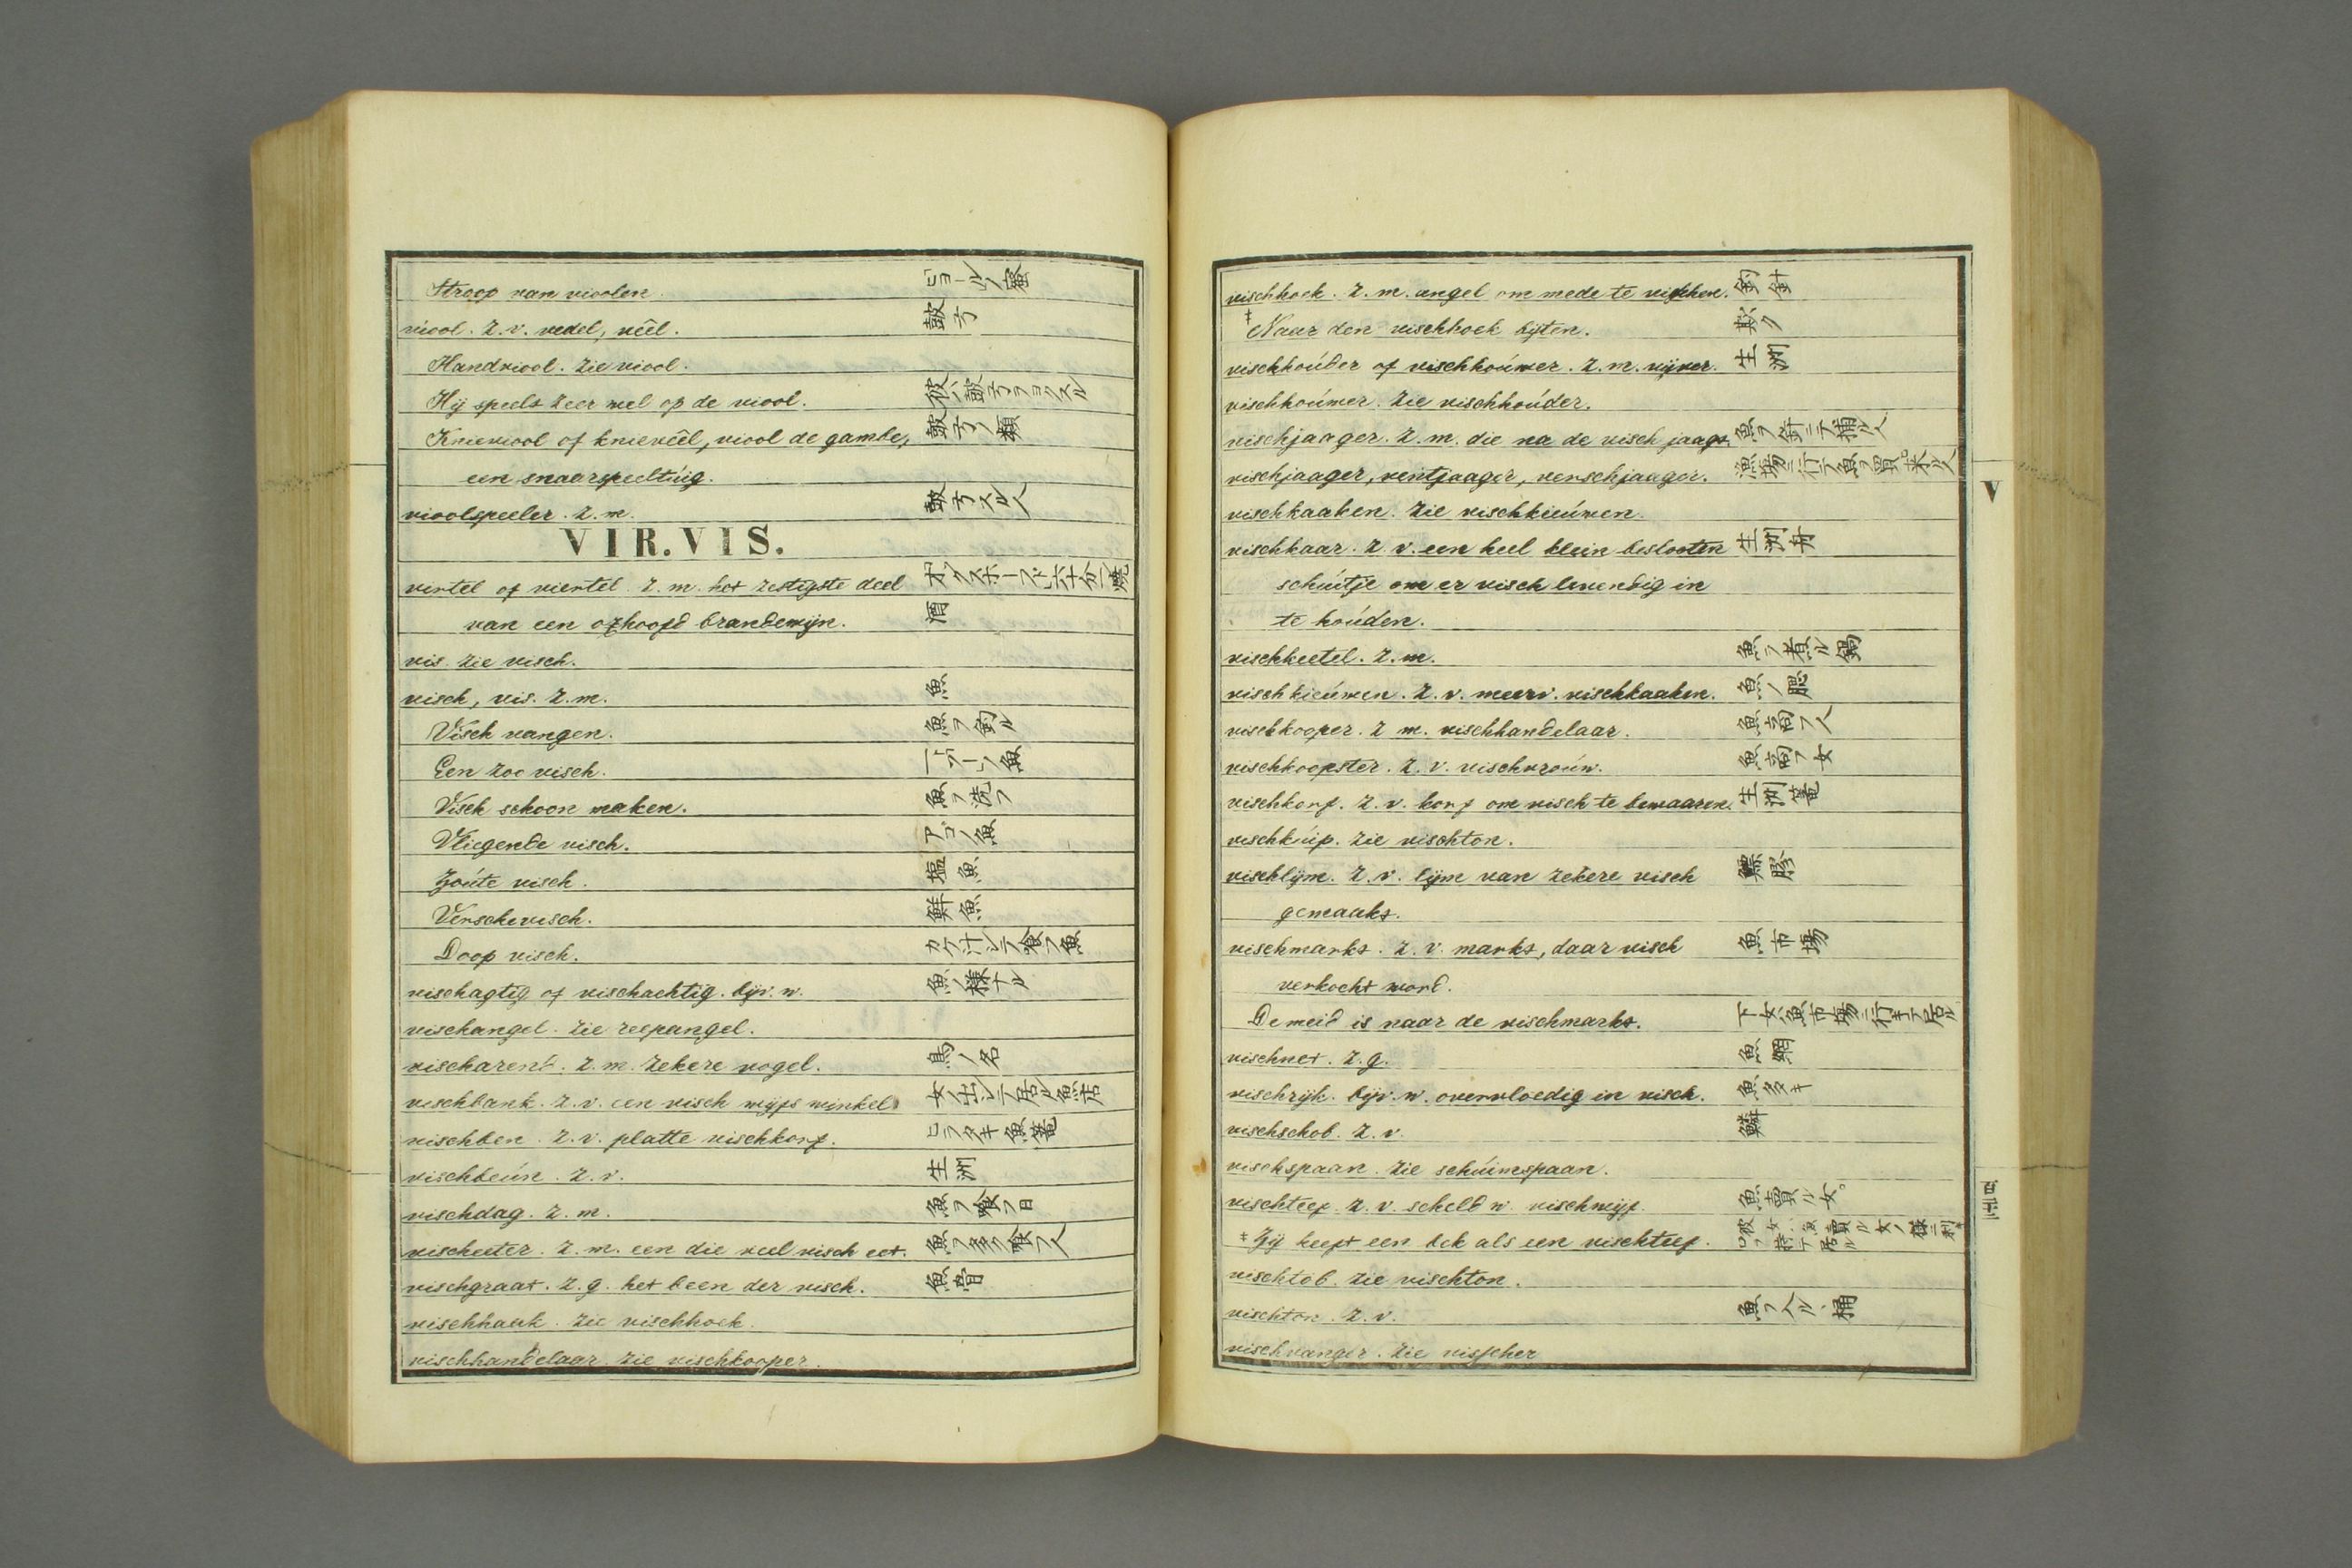 Stroop van violen. ビヨールノ蜜
viool. Z.v. vedel, vêl. 皷弓
Handviool. Zie viool.
Hij speelt zeer wel op de viool. 彼ハ皷弓ヲヨクスル
Knieviool of knievêl, viool de gambe, 皷弓ノ類
een snaarspeeltúig.
vioolspeeler. Z.m. 皷弓スル人
VIR. VIS.
virtel of viertel. Z.m. het zestigste deel
van een oxhoofd brandewijn. 酒
vis. Zie visch.
visch, vis. Z.m. 魚
Visch vangen. 魚ヲ釣ル
Een zoo visch.
Visch schoon maken. 魚ヲ洗フ
Vliegende visch. アゴノ魚
Zoúte visch. 塩魚
Versche visch. 鮮魚
Doop visch. カケ汁シテ食フ魚
vischagtig of vischachtig. bijv. w. 魚ノ様ナル
vischangel. Zie reepangel.
vischarent. Z.m. zekere vogel. 鳥ノ名
vischbank. Z.v. een visch wijfs winkel. 女ノ出シテ居ル魚店
vischben. Z.v. platte vischkorf. ヒラタキ魚篭
vischbeún. Z.v. 生洲
vischdag. Z.m. 魚ヲ喰フ日
vischeeter. Z.m. een die veel visch eet. 魚ヲ多ク喰フ人
vischgraat. Z.g. het been der visch. 魚骨
vischhaak. Zie vischhoek.
vischhandelaar. Zie vischkooper.
vischhoek. Z.m. angel om mede te visschen. 釣針
‡ Naar den vischhoek bijten.
vischhoúder of vischhoúwer. Z.m. vijver. 生洲
vischhoúwer. Zie vischhoúder.
vischjaager. Z.m. die na de visch jaagt. 魚ヲ針ニテ捕ル人
vischjaager, ventjaager, verschjaager. 漁場ニ行テ魚ヲ買テ来ル人
V
vischkaaken. Zie vischkieúwen.
vischkaar. Z.v. een heel klein beslooten 生洲舟
schúitje om er visch levendig in
te hoúden.
vischkeetel. Z.m. 魚ヲ煮ル鍋
vischkieúwen. Z.v. meerv. vischkaaken. 魚ノ腮
vischkooper. Z.m. vischhandelaar. 魚商フ人
vischkoopster. Z.v. vischvroúw. 魚商フ女
vischkorf. Z.v. korf om visch te bewaaren. 生洲篭
vischkúip. Zie vischton.
vischlijm. Z.v. lijm van zekere visch 鰾膠
gemaakt.
vischmarkt. Z.v. markt, daar visch 魚市場
verkocht word.
De meid is naar de vischmarkt. 下女ハ魚市場ニ行キテ居ル
vischnet. Z.g. 魚網
vischrijk. bijv. w. overvloedig in visch. 魚多キ
vischschob. Z.v. 鱗
vischspaan. Zie schúimspaan.
vischteef. Z.v. scheld w. vischwijf. 魚賣ル女
‡ Zij heeft een bek als een vischteef. 彼女ハ魚賣ル女ノ様ニ 口ヲ持テ居ル
vischtob. Zie vischton.
vischton. Z.v. 魚ヲ入ル桶
vischvanger. Zie visscher